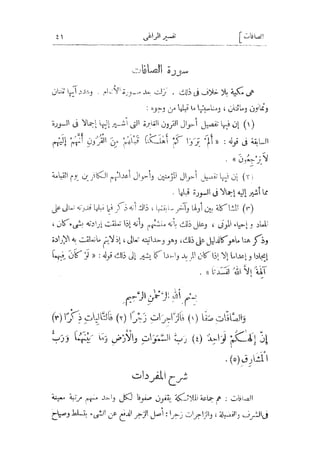 الصافات ]
تفسير المراغى
٤١
سورة الصافات
هى مكية بلا خلاف فى ذلك . نزلت بعد سورة الأنعام . وعدد آيها ثنتان
وثمانون ومائتان ، ومناسبتها ما قبلها من وجوه :
(١) إن فيها تفصيل أحوال القرون الغابرة التى أشير إليها إجمالا فى السورة
السابقة فى قوله : « أَلَمْ يَرَوْا كَمْ أَهْلَكْنَا قَبْلَهُمْ مِنَ الْقُرُونِ أَنَّهُمْ إِلَيْهِمْ
لَا يَرْجِعُونَ » .
(٢) إن فيها تفصيل أحوال المؤمنين وأحوال أعدائهم الكافرين يوم القيامة
مما أشير إليه إجمالا فى السورة قبلها .
(٣) المشاكلة بين أولها وآخر سابقتها ، ذاك أنه ذكر فيما قبلها قدرته تعالى على
المعاد وإحياء الموتى ، وعلل ذلك بأنه منشئهم وأنه إذا تعلقت إرادته بشىء كان ،
وذكر هنا ماهو كالدليل على ذلك ، وهو وحدانيته تعالى ، إذ لايتم ماتعلقت به الإرادة
إيجادا وإعداما إلا إذا كان المريد واحدا كما يشير إلى ذلك قوله : « لَوْ كَانَ فِيهِمَا
آلِهَةٌ إِلَّا اللهُ لَفَسَدَتَا » .
بِسْمِ اللهِ الرَّحْمٰنِ الرَّحِيمِ
وَالصَّافَّاتِ صَفًّا (١) فَالزَّاجِرَاتِ زَجْرًا (٢) فَالتَّالِيَاتِ ذِكْرًا (٣)
إِنَّ إِلٰهَكُمْ لَوَاحِدٌ (٤) رَبُّ السَّمٰوَاتِ وَالْأَرْضِ وَمَا بَيْنَهُمَا وَرَبُّ
الْمَشَارِقِ (٥) .
شرح المفردات
الصافات : هم جماعة الملائكة يقفون صفوفا لكل واحد منهم مرتبة معينة
فى الشرف والفضيلة ، والزاجرات زجرا : أصل الزجر الدفع عن الشىء بتسلط وصياح